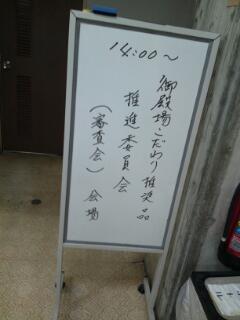 14:00～
御殿場こだわり推奨品
推進委員会
(審査会) 会場